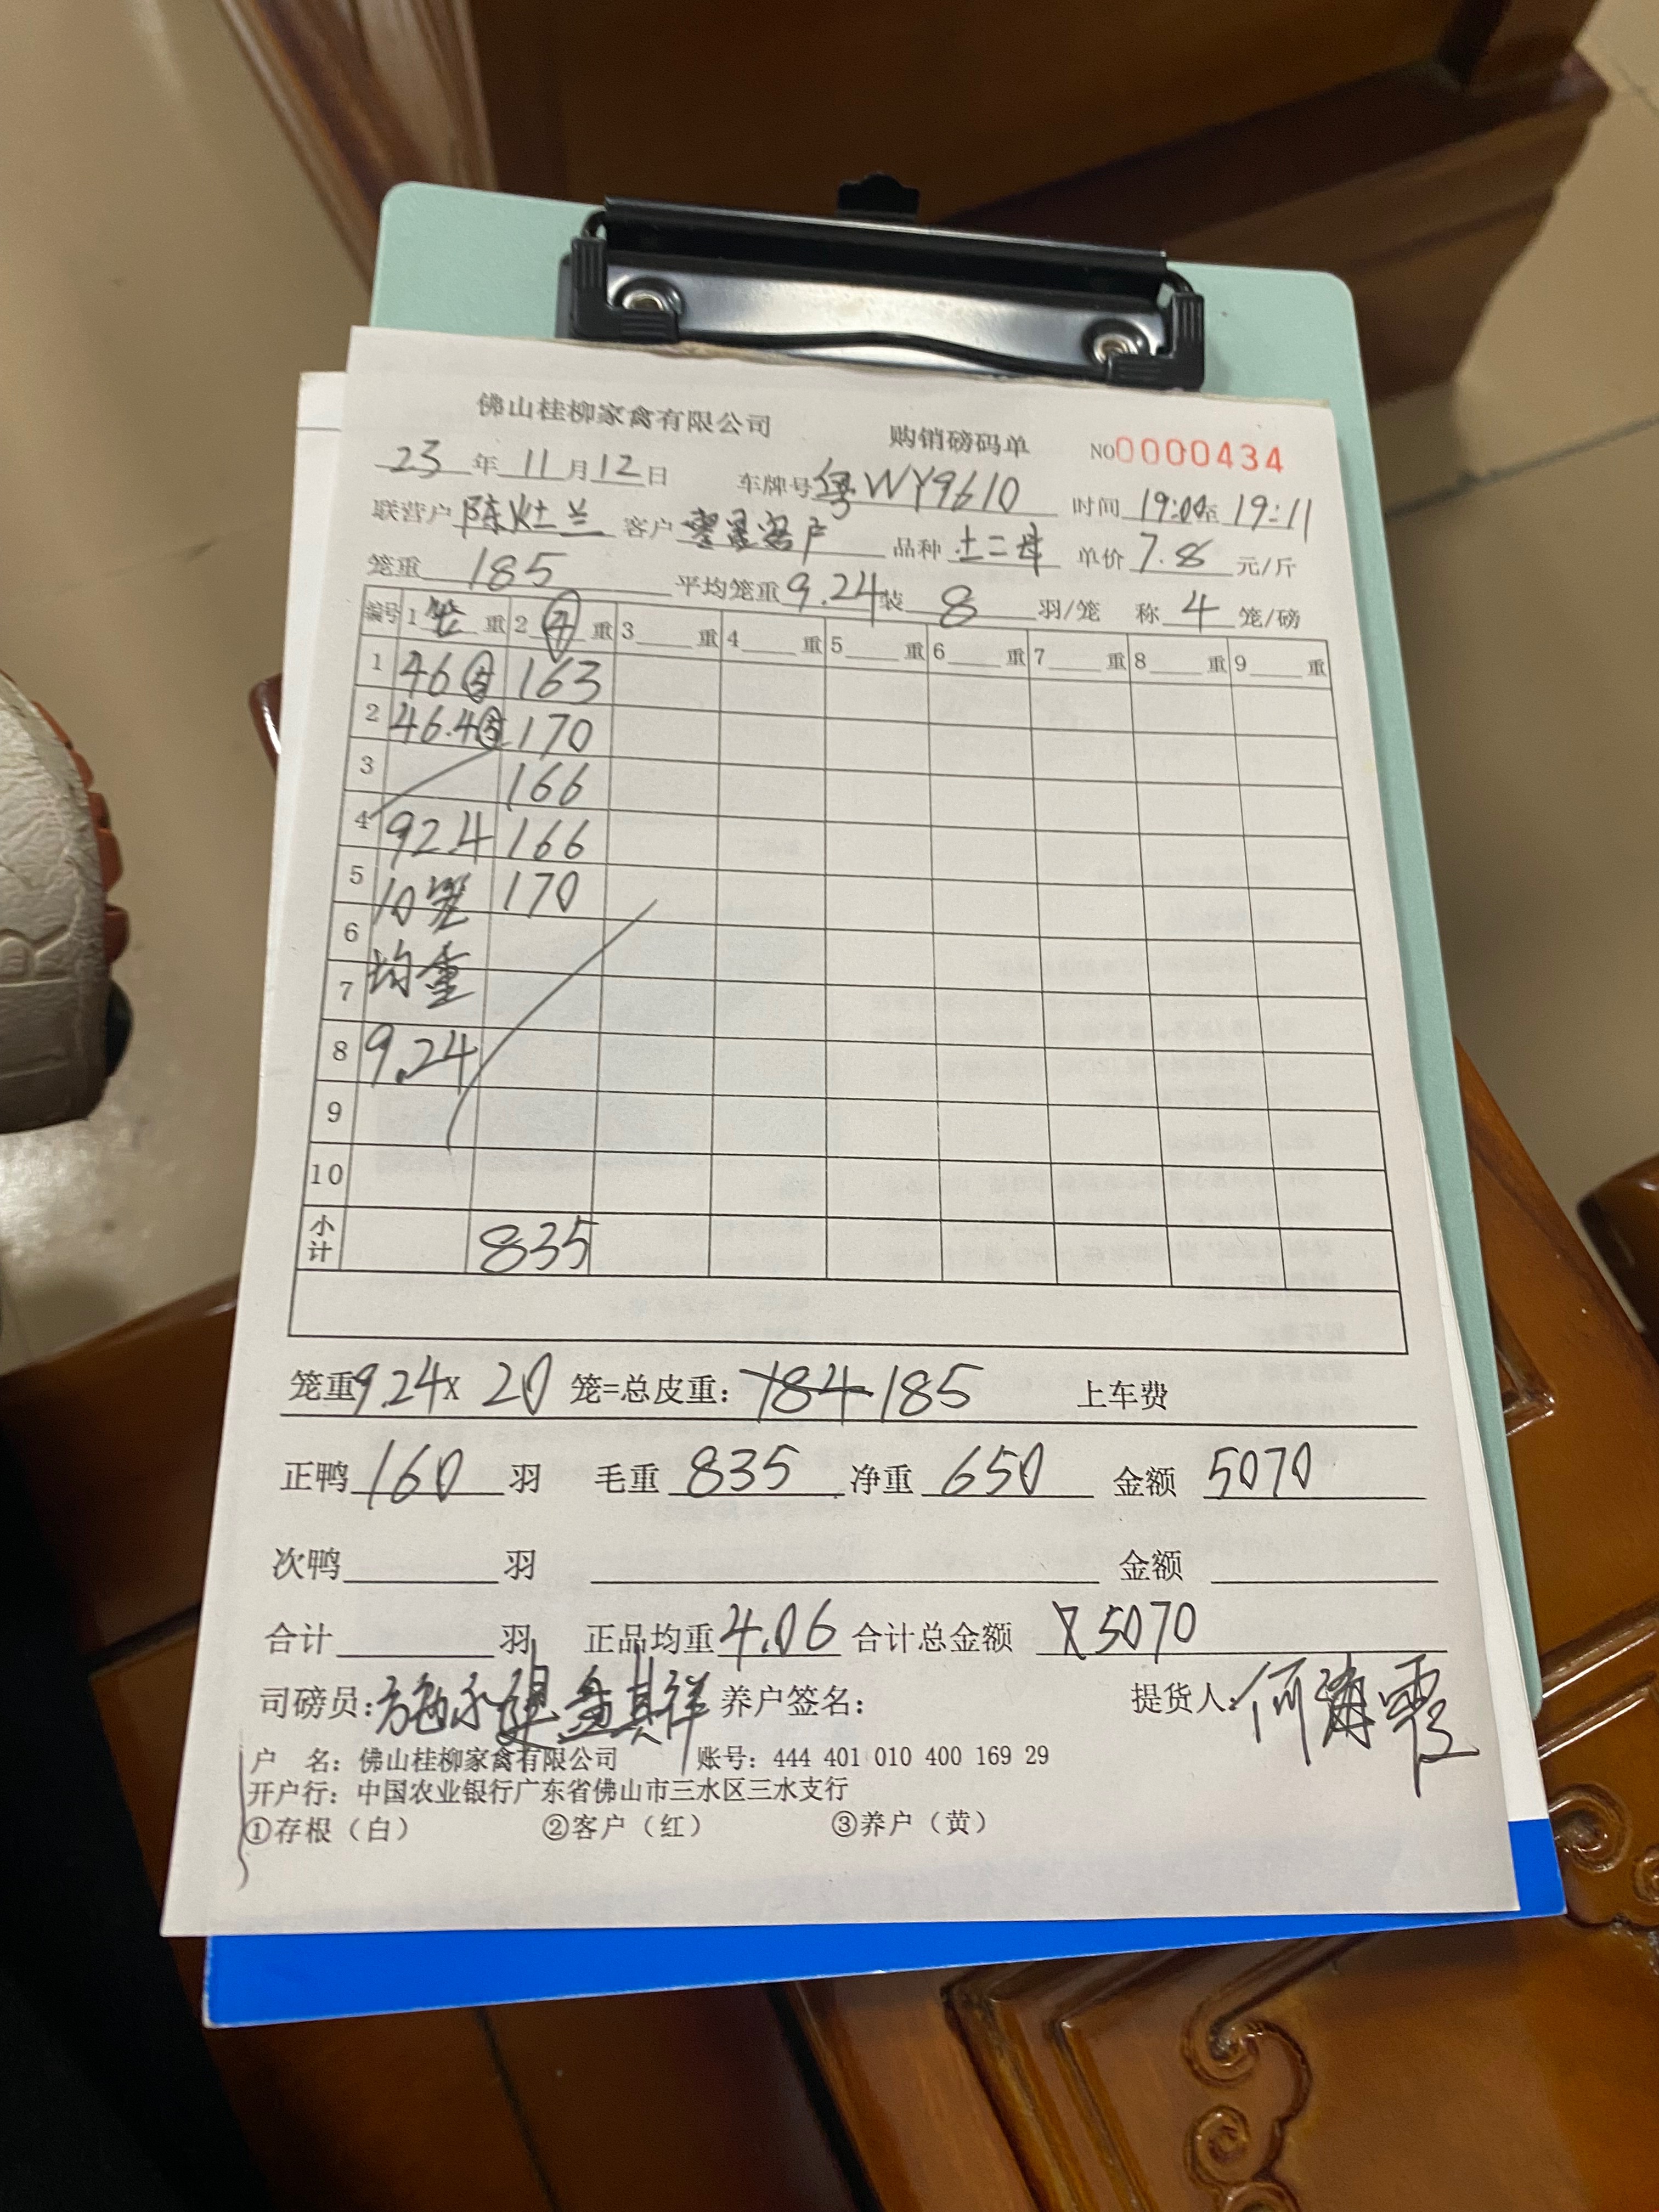 佛山桂柳家禽有限公司 购销磅码单 NO0000434
23年11月12日 车牌号粤WY9610 时间19:00至19:11
联营户陈灶兰 客户零星客户 品种土二母 单价7.8元/斤
笼重185 平均笼重9.24装8羽/笼 称4笼/磅
编号 1笼重 2④重 3重 4重 5重 6重 7重 8重 9重
1 46⑤ 163
2 46.4⑤ 170
3 166
4 92.4 166
5 10笼 170
6 均重
7
8 9.24
9
10
小计 835
笼重9.24X20笼=总皮重:185 上车费
正鸭160羽 毛重835 净重650 金额5070
次鸭羽 金额
合计羽 正品均重4.06 合计总金额5070
司磅员:施永建 盘其祥 养户签名: 提货人:何海
户 名: 佛山桂柳家禽有限公司 账号: 444 401 010 400 169 29
开户行: 中国农业银行广东省佛山市三水区三水支行
①存根（白） ②客户（红） ③养户（黄）